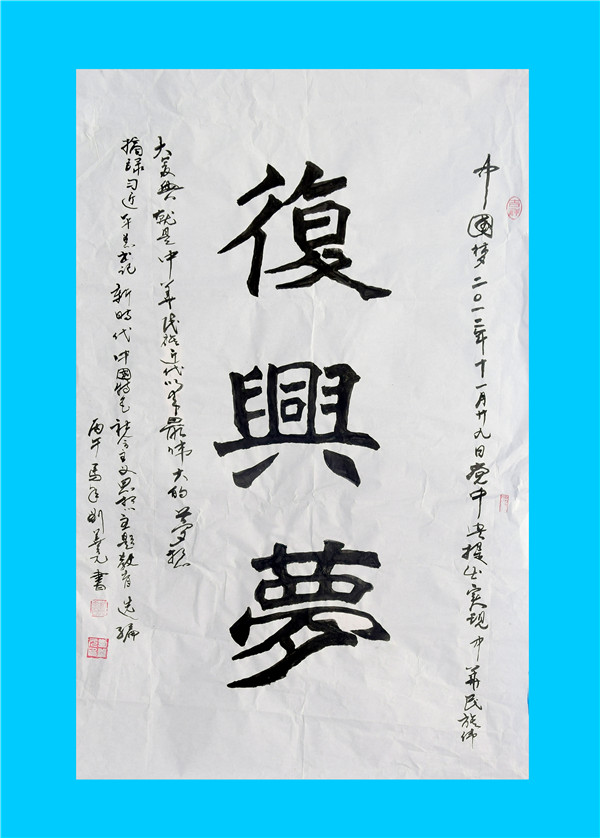 中國梦二〇一二年十一月廿九日党中央提出实现中华民族伟
復興夢
大复興就是中华民族近代以来最伟大的夢想
摘録习近平总书记新時代中國特色社会主义思想主题教育选编
丙午馬年刘元書